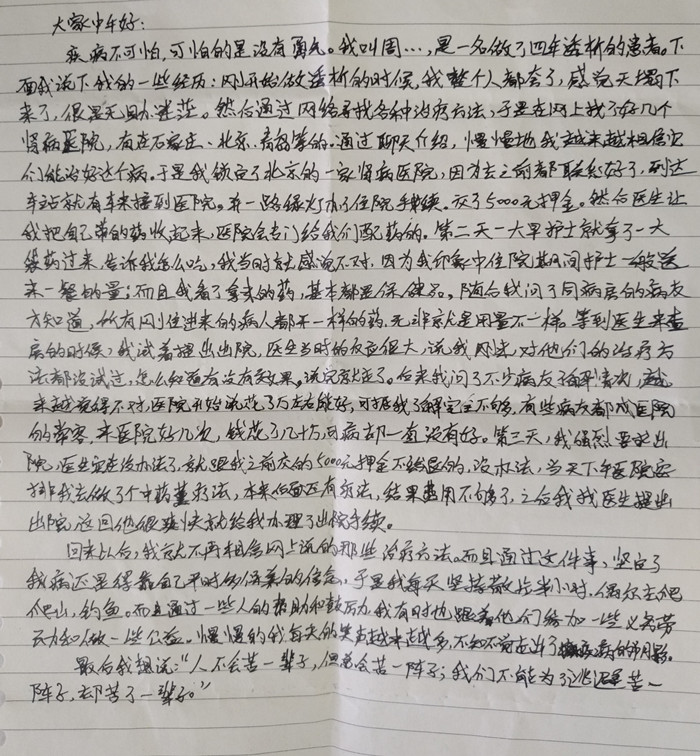 大家中午好:
疾病不可怕,可怕的是没有勇气。我叫周…,是一名做了四年透析的患者。下
面我说下我的一些经历:刚开始做透析的时候,我整个人都夸了,感觉天塌下
来了,很是无助迷茫。然后通过网络寻找各种治疗方法,于是在网上找了好几个
肾病医院,有在石家庄、北京、青岛等的。通过聊天介绍,慢慢地我越来越相信它
们能治好这个病。于是我锁定了北京的一家肾病医院,因为去之前都联系好了,到达
车站就有车来接到医院。并一路绿灯办了住院手续。交了5000元押金。然后医生让
我把自己带的药收起来,医院会专门给我们配药的。第二天一大早护士就拿了一大
袋药过来,告诉我怎么吃,我当时就感觉不对,因为我印象中住院期间护士一般送
来一餐的量;而且我看了拿来的药,基本都是保健品。随后我问了同病房的病友
方知道,所有刚住进来的病人都开一样的药,无非就是用量不一样。等到医生来查
房的时候,我试着提出出院,医生当时的反应很大,说我刚来,对他们的治疗方
法都没试过,怎么知道有没有效果。说完就走了。后来我问了不少病友了解情况,越
来越觉得不对,医院开始说花了万左右能好,可据我了解完全不够,有些病友都成医院
的常客,来医院好几次,钱花了几十万可病却一直没有好。第三天,我强烈要求出
院,医生实在没办法了,就跟我之前交的5000元押金不给退的,没办法,当天下午医院安
排我去做了个中药薰疗法,本来后面还有疗法,结果费用不够了,之后我找医生提出
出院,这回他很爽快就给我办理了出院手续。
回来以后,我就不再相信网上说的那些治疗方法。而且通过这件事,坚定了
我病还是得靠自己平时的保养的信念,于是我每天坚持散步半小时,偶尔去爬
爬山,钓鱼。而且通过一些人的帮助和鼓励,我有时也跟着他们参加一些义务劳
动和做一些公益。慢慢的我每天的笑声越来越多,不知不觉走出了疾病的阴影。
最后我想说:“人不会苦一辈子,但总会苦一阵子;我们不能为了逃避苦一
阵子,却苦了一辈子。”